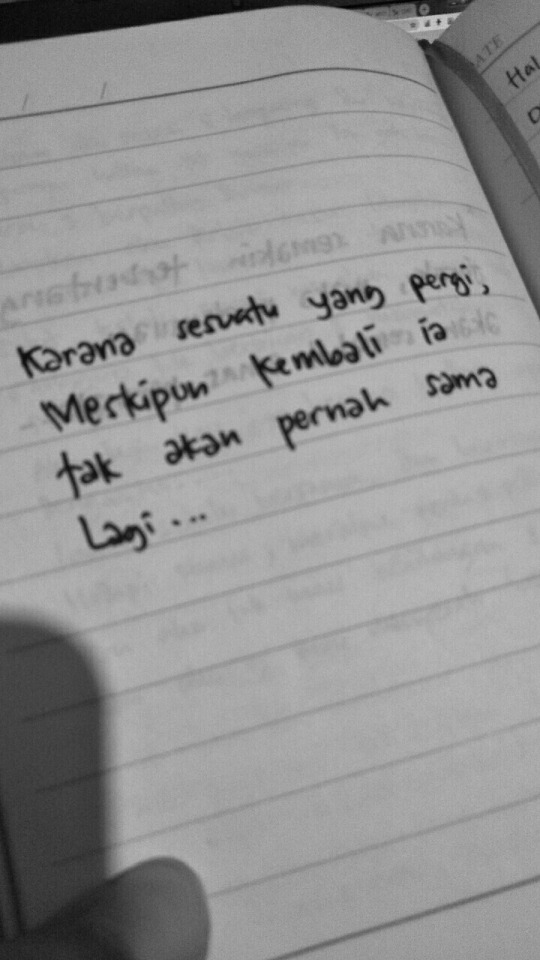 Karana sesuatu yang pergi,
Meskipun kembali ia
tak akan pernah sama
Lagi...
ATE
Hal